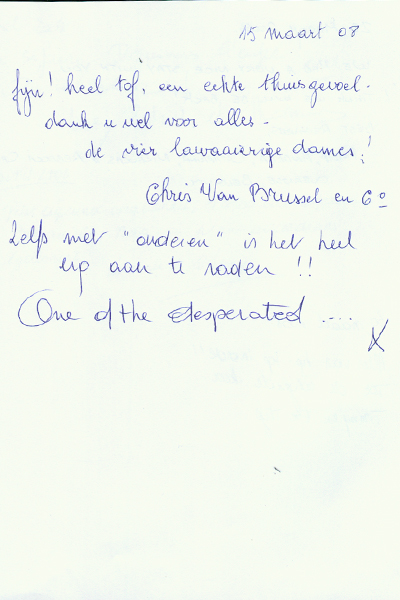 15 maart 08
fijn! heel tof, een echte thuisgevoel.
dank u wel voor alles.
de vier lawaaierige dames!
Chris Van Brussel en Co
Zelfs met "ouderen" is het heel
erg aan te raden !!
One of the desperated ....
X